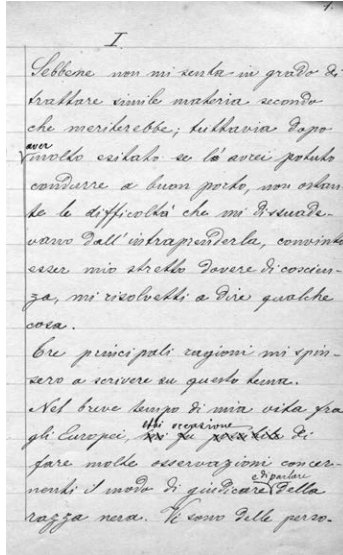 1.
I.
Sebbene non mi senta in grado di
trattare simile materia secondo
che meriterebbe; tuttavia dopo
aver
molto esitato se la avrei potuto
condurre a buon porto, non ostan-
te le difficoltà che mi dissuade-
vano dall'intraprenderla, convinto
esser mio stretto dovere di coscien-
za, mi risolvetti a dire qualche
cosa.
Tre principali ragioni mi spin-
sero a scrivere su questo tema.
Nel breve tempo di mia vita fra
ebbi occasione
gli Europei, mi fu possibile di
fare molte osservazioni concer-
e di parlare
nenti il modo di giudicare della
razza nera. Vi sono delle perso-